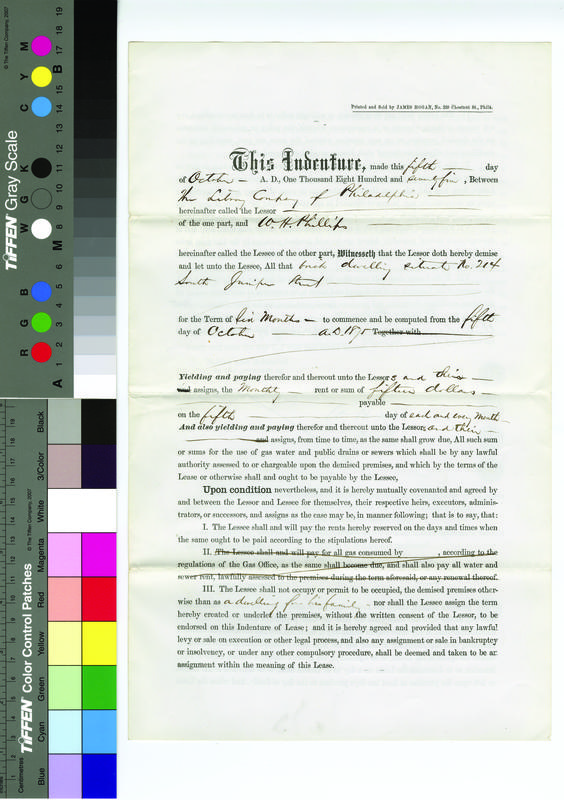 Printed and Sold by JAMES HOGAN, No. Chestnut St., Phila.
This Indenture, made this fifth day
of October A. D., One Thousand Eight Hundred and seventy five, Between
The Library Company of Philadelphia
hereinafter called the Lessor
of the one part, and W. H. Phillips
hereinafter called the Lessee of the other part, Witnesseth that the Lessor doth hereby demise
and let unto the Lessee, All that brick dwelling situate No. 214
South Juniper Street
for the Term of Six Months to commence and be computed from the fifth
day of October A.D. 1875 Together with
Yielding and paying therefor and thereout unto the Lessors and their
assigns, the Monthly rent or sum of fifteen dollars
payable
on the fifth day of each and every Month
And also yielding and paying therefor and thereout unto the Lessors and their
and assigns, from time to time, as the same shall grow due, All such sum
or sums for the use of gas water and public drains or sewers which shall be by any lawful
authority assessed to or chargeable upon the demised premises, and which by the terms of the
Lease or otherwise shall and ought to be payable by the Lessee,
Upon condition nevertheless, and it is hereby mutually covenanted and agreed by
and between the Lessor and Lessee for themselves, their respective heirs, executors, adminis-
trators, or successors, and assigns as the case may be, in manner following; that is to say, that:
I. The Lessee shall and will pay the rents hereby reserved on the days and times when
the same ought to be paid according to the stipulations hereof.
II. The Lessee shall and will pay for all gas consumed by , according to the
regulations of the Gas Office, as the same shall become due, and shall also pay all water and
sewer rent, lawfully assessed to the premises during the term aforesaid, or any renewal thereof.
III. The Lessee shall not occupy or permit to be occupied, the demised premises other-
wise than as a dwelling for his family nor shall the Lessee assign the term
hereby created or underlet the premises, without the written consent of the Lessor, to be
endorsed on this Indenture of Lease; and it is hereby agreed and provided that any lawful
levy or sale on execution or other legal process, and also any assignment or sale in bankruptcy
or insolvency, or under any other compulsory procedure, shall be deemed and taken to be an
assignment within the meaning of this Lease.
TIFFEN Gray Scale
© The Tiffen Company, 2007
R G B W G K C Y M
A 1 2 3 4 5 6 M 8 9 10 11 12 13 14 15 B 17 18 19
TIFFEN Color Control Patches
© The Tiffen Company, 2007
Centimetres
Blue Cyan Green Yellow Red Magenta White 3/Color Black